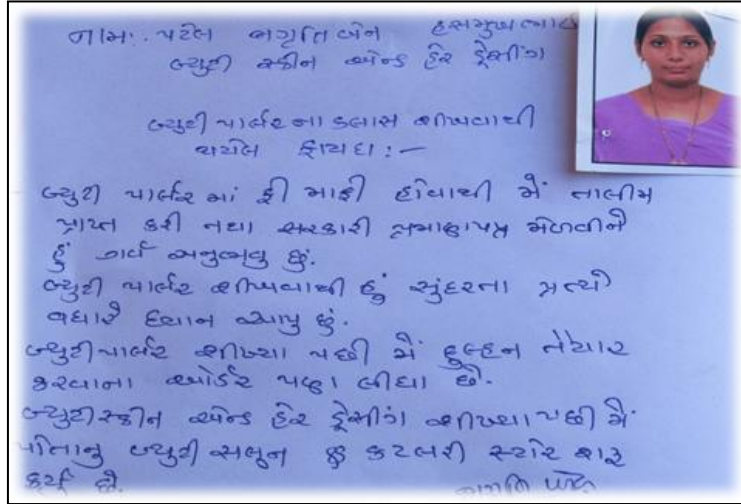 નામ:. પટેલ જાગૃતિબેન હસમુખભાઇ
બ્યુટી સ્કીન એન્ડ હેર ડ્રેસીંગ
બ્યુટી પાર્લર ના કલાસ શીખવાથી
થયેલ ફાયદા :—
બ્યુટી પાર્લર માં ફી માફી હોવાથી મેં તાલીમ
પ્રાપ્ત કરી તથા સરકારી પ્રમાણપત્ર મેળવીને
હું ગર્વ અનુભવુ છું.
બ્યુટી પાર્લર શીખવાથી હું સુંદરતા પ્રત્યે
વધારે ધ્યાન આપુ છું.
બ્યુટીપાર્લર શીખ્યા પછી મેં દુલ્હન તૈયાર
કરવાના ઓર્ડર પણ લીધા છે.
બ્યુટીસ્કીન એન્ડ હેર ડ્રેસીંગ શીખ્યા પછી મેં
પોતાનુ બ્યુટી સલુન કટલરી સ્ટોર શરૂ
કર્યુ છે.